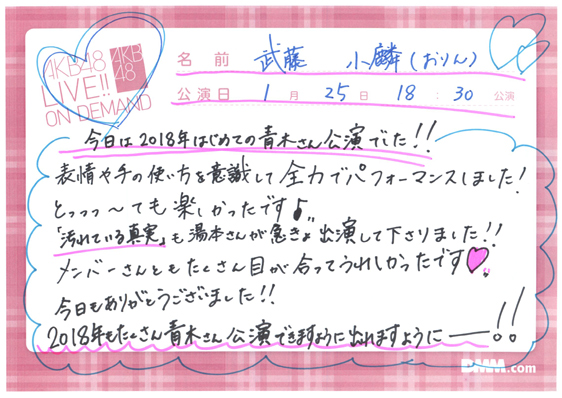 AKB48
LIVE!!
ON DEMAND
AKB
48
名前 武藤 小麟(おりん)
公演日 1月25日 18:30 公演
今日は2018年はじめての青木さん公演でした!!
表情や手の使い方を意識して全力でパフォーマンスしました!
とっっっ〜ても楽しかったです♪
「汚れている真実」も湯本さんが急きょ出演して下さりました!!
メンバーさんともたくさん目が合ってうれしかったです♥
今日もありがとうございました!!
2018年もたくさん青木さん公演できますように出れますようにー!!
DMM.com